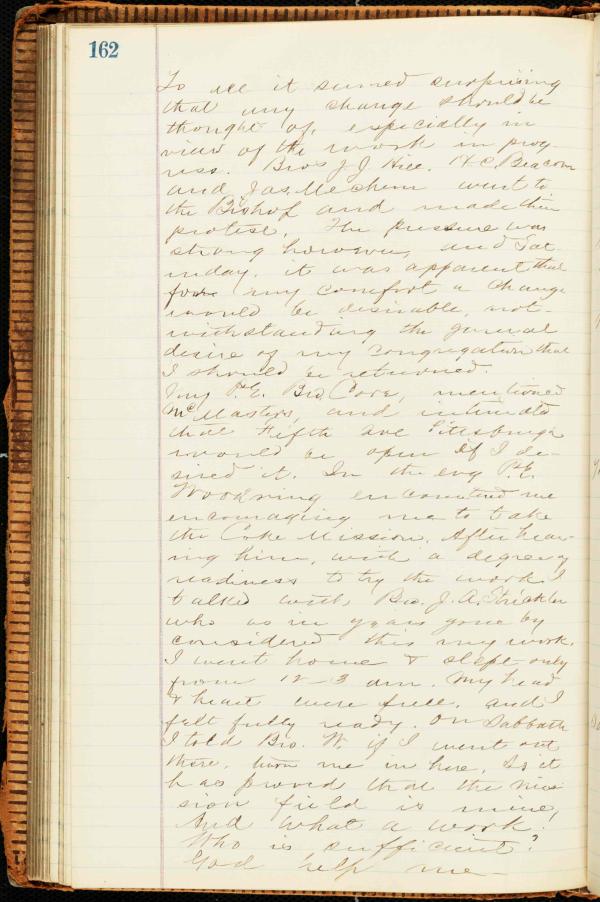 162
To all it seemed surprising
that any change should be
thought of, especially in
view of the work in prog-
ress. Bros J J Hill, H C. Beacom
and Jas. Mechem went to
the Bishop and made their
protest. The pressure was
strong however, and Sat-
urday. it was apparent that
for my comfort a change
would be desirable, not-
withstanding the general
desire of my congregation that
I should be returned.
my P.E. Bro Core, mentioned
McMasters, and intimated
that Fifth Ave Pittsburgh
would be open if I de-
sired it. In the evg P.E.
Woodring encountered me
encouraging me to take
the Coke Mission. After hear-
ing him, with a degree of
readiness to try the work I
talked with Bro. J. A. Strickler
who as in years gone by
considered this my work.
I went home & slept only
from 12-3 am. My head
& heart were full, and I
felt fully ready. On Sabbath
I told Bro. W. if I went out
there, turn me in here. So it
has proved that the mis-
sion field is mine,
And what a work.
Who is sufficient?
God help me—